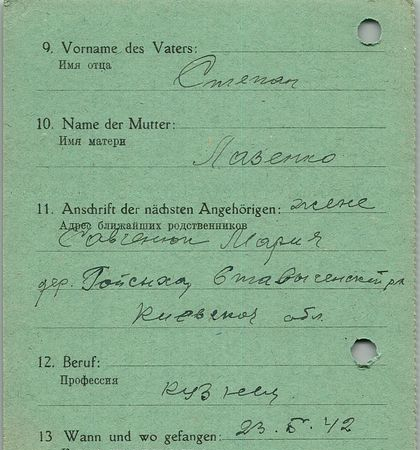 9. Vorname des Vaters:
Имя отца
Степан
10. Name der Mutter:
Имя матери
Лазенко
11. Anschrift der nächsten Angehörigen: жене
Адрес ближайших родственников
Мария
дер. Ставыченский р
Киевской обл.
12. Beruf:
Профессия
кузнец
13 Wann und wo gefangen: 23. 42